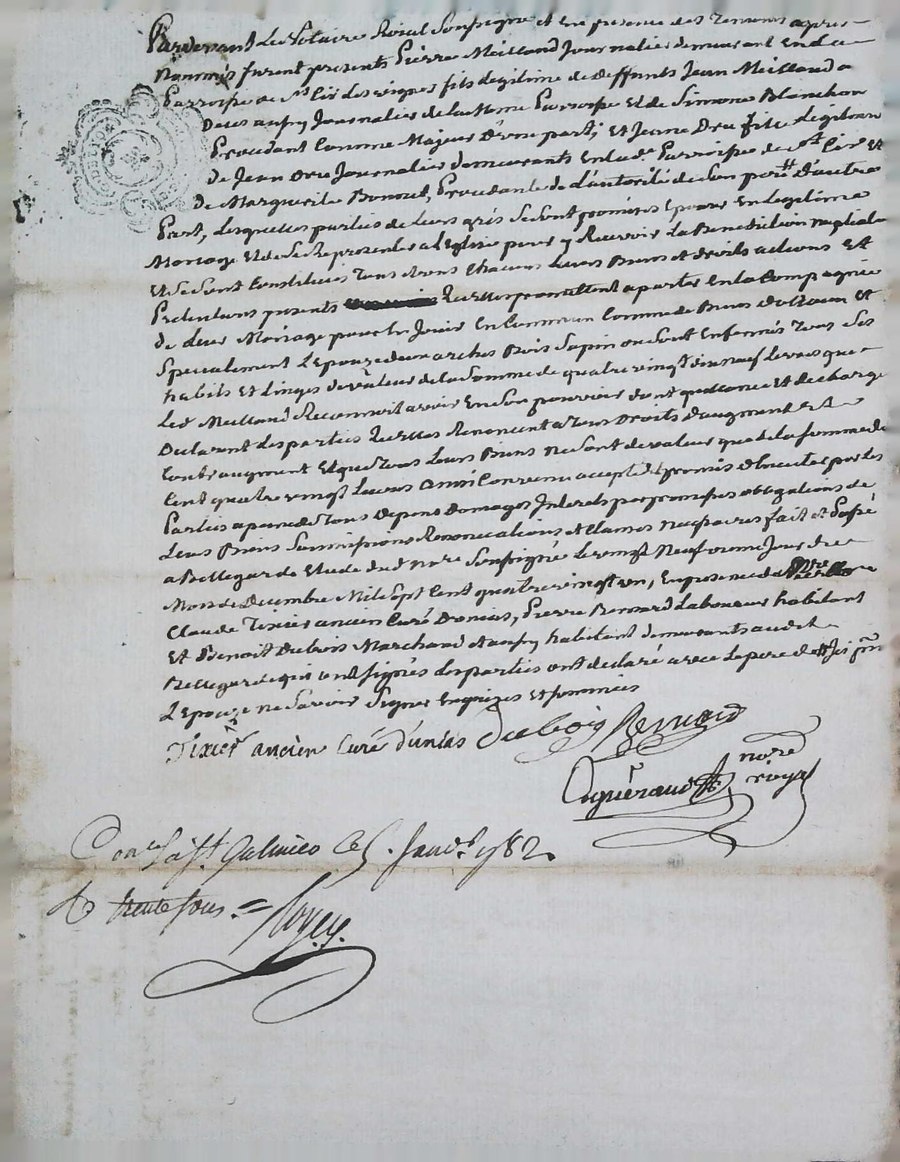 Pardevant Le Notaire Roial Soussigné et En presence des Temoins apres
Nommés furent presents Pierre Meilland Journalier demeurant En La
Parroisse de St Cir Les vignes fils Legitime de deffunts Jean Meilland
Journalier de La Meme Parroisse Et de Simone Blanchon
Procedant Comme Majeur D'une part; Et Jeanne Dru fille Legitime
de Jean Dru Journalier demeurants En Lad. Parroisse de St Cir Et
De Marguerite Bonnet, Procedante de L'autorité de Son pere D'autre
Part, Lesquelles parties de Leurs grés Se Sont promises Epouser En Legitime
Mariage Et de Se Representer a L'Eglise pour y Recevoir La Benediction nuptiale
Et Se Sont Constitués Tous Chacuns Leurs Biens et droits actions Et
Pretentions presents Qu'elles promettent aporter En La Compagnie
de Leur Mariage pour En Jouir En Commun Comme de Biens Et
Specialement L'Epouze d'un arches Bois Sapin ou Sont Enfermés Tous Ses
habits Et Linges de valeur de La Somme de quatre vingt dix neuf Livres que
Led. Meilland Reconnoit avoir En Son pouvoir dont quittance et decharge
Declarant Les parties qu'elles Renoncent a Tous Droits d'augment Et
Contraugment Et que Tous Leurs Biens ne Sont de valeur que de La Somme de
Cent quatre vingt Livres Ainsi Convenu accepté et promis Executer par Les
Parties a peine de Tous Depens Domages Interets par promesses obligations de
Leurs Biens Soumissions Renonciations et Clauses Necessaires fait et Passé
a Bellegarde Etude dud. Nore Soussigné Le vingt Neuf Jour du
Mois de Decembre Mil Sept Cent quatre vingt un, En presence de
Claude Tixier ancien Curé Dunias, Pierre Bernard Laboureur habitant
Et Benoit Dubois Marchand habitant demeurants audit
Bellegarde qui ont Signés Les parties ont declaré avec Le pere de
L'Epouze ne Savoir Signer Enquizes Et Sommées
Tixier ancien Curé d'unias Dubois Bernard
nore
royal
Conlé a St Galmier Le 5. Janvr 1782
R trente Sous